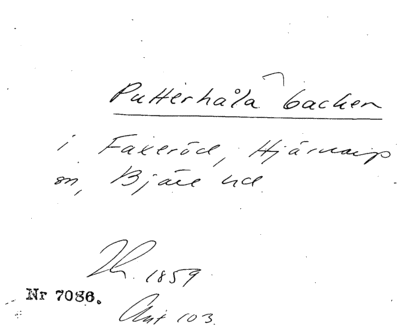 Putterhåla backen
i Faxeröd, Hjärnarp
sn, Bjäre hd
Lh. 1859
Nr 7086.
Ant 103.